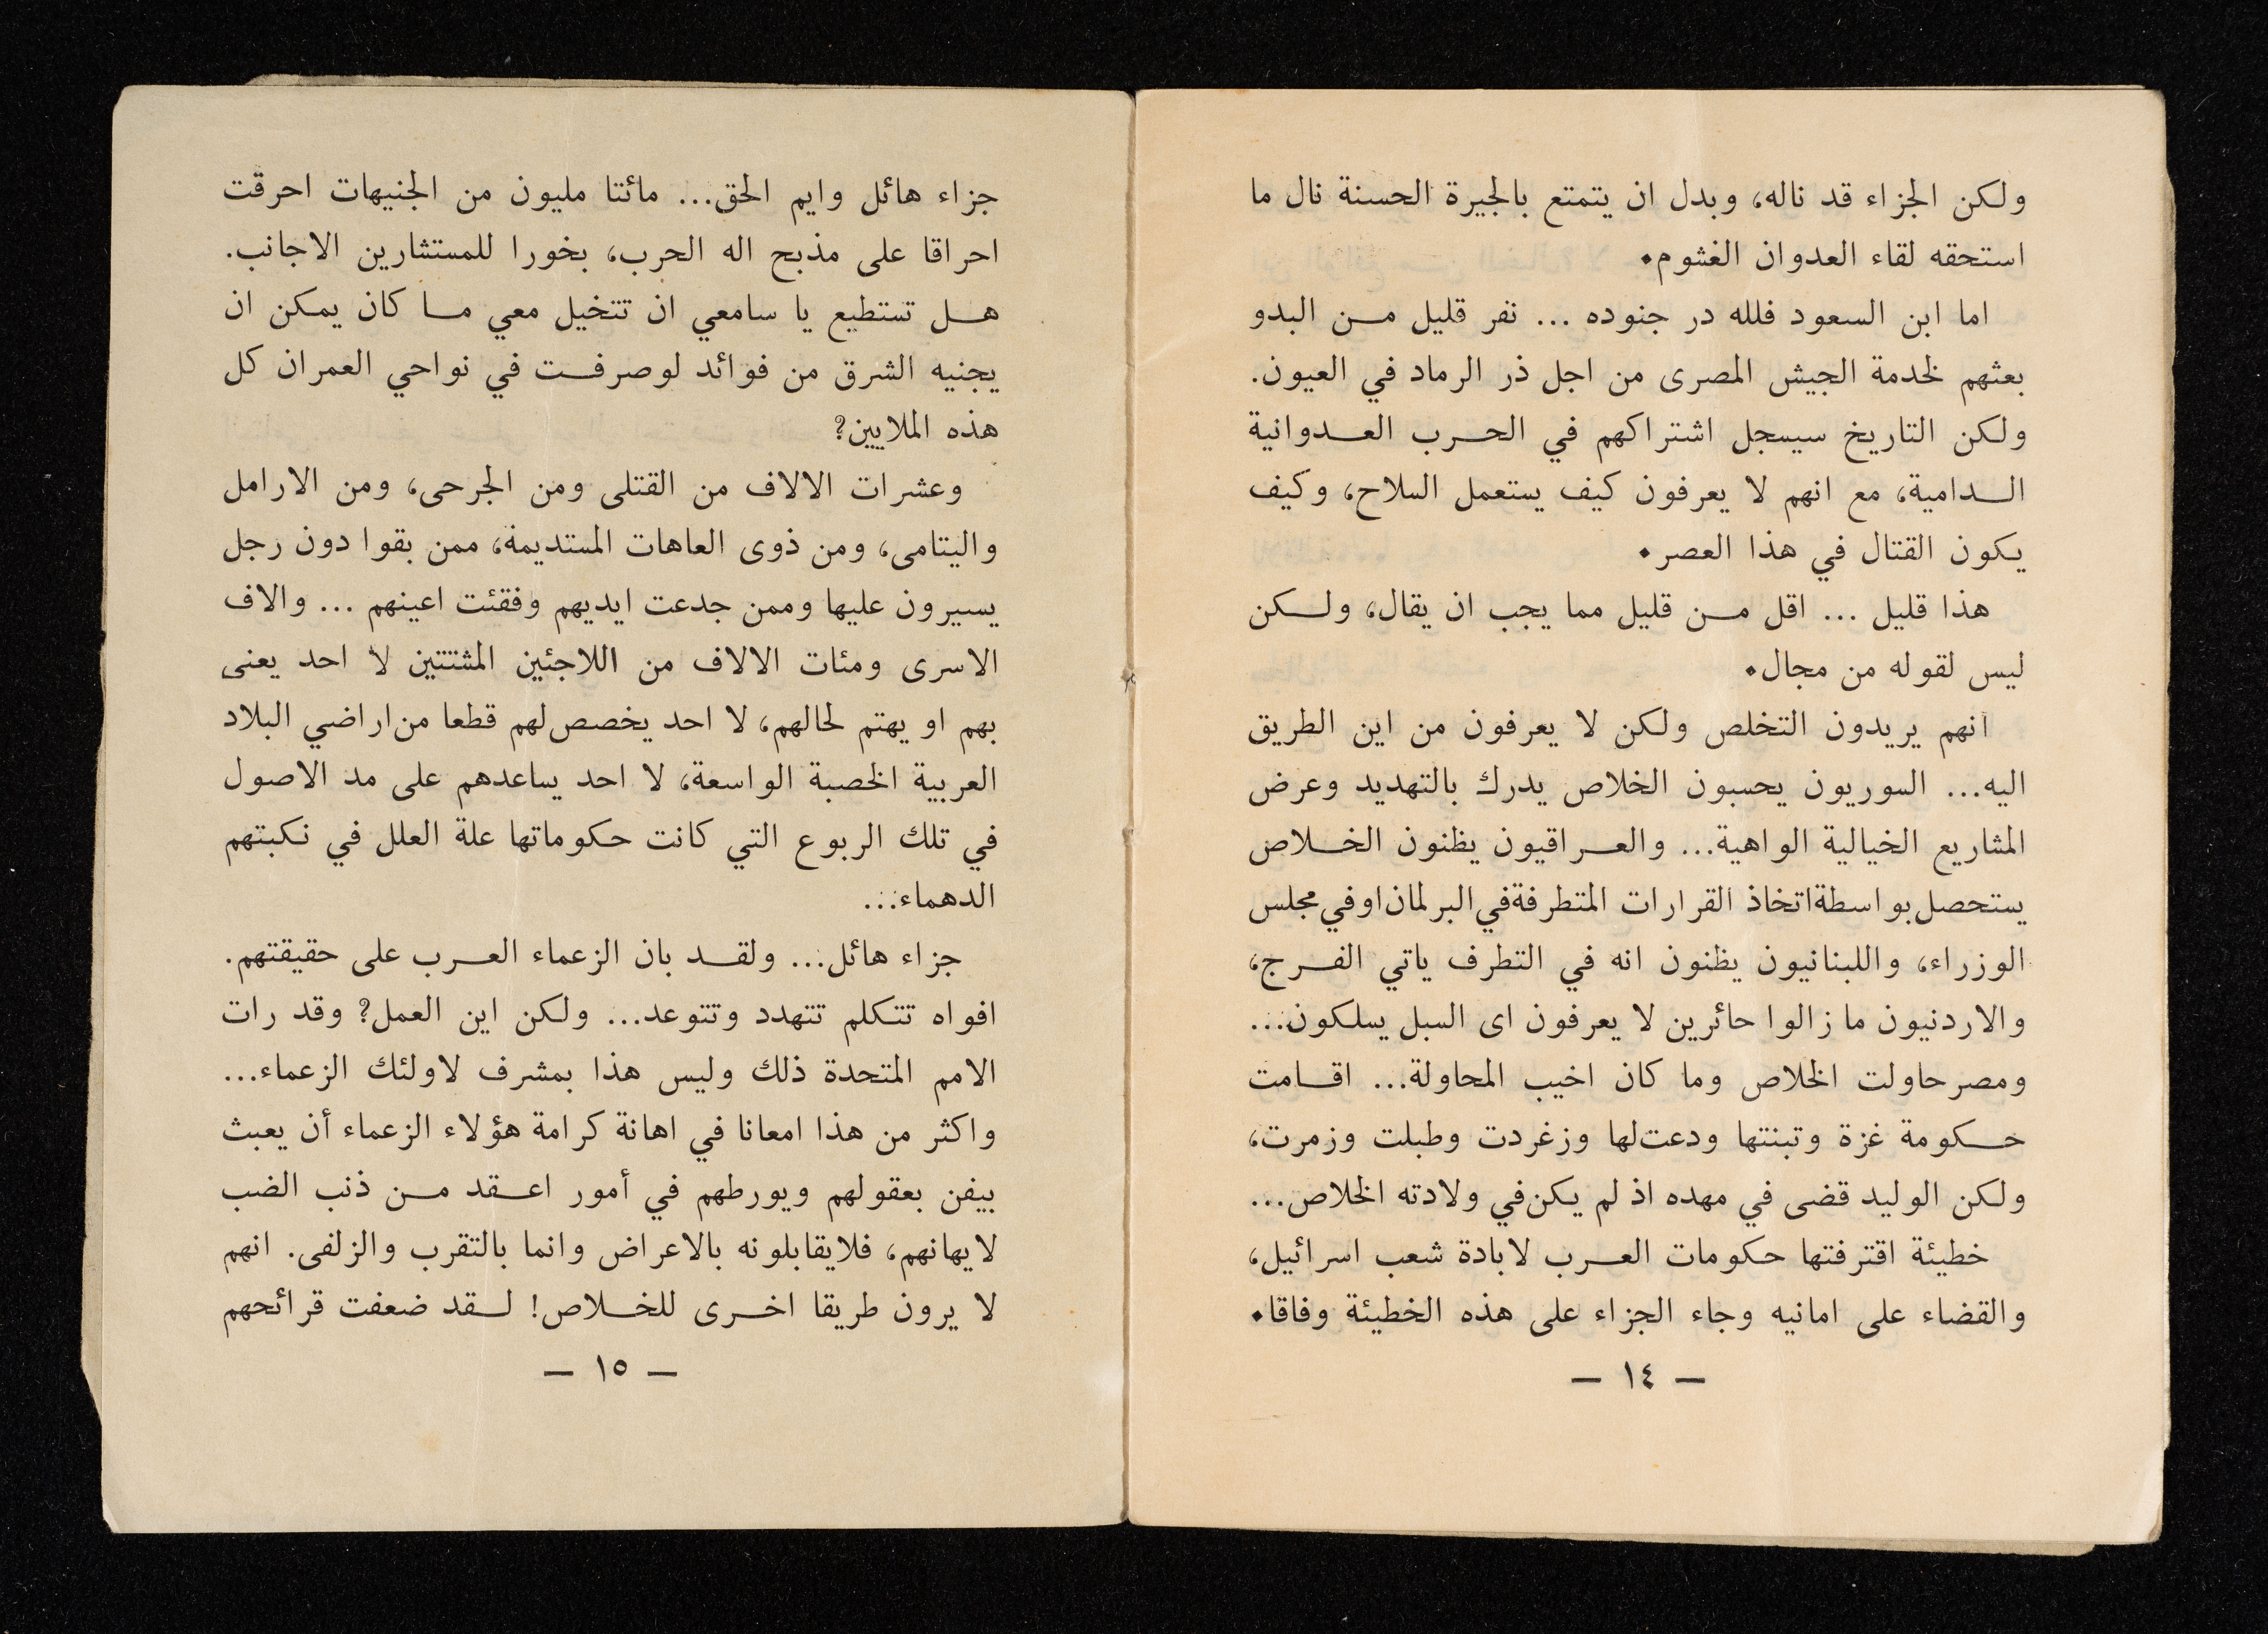 ولكن الجزاء قد ناله، وبدل ان يتمتع بالجيرة الحسنة نال ما
استحقه لقاء العدوان الغشوم.
اما ابن السعود فلله در جنوده ... نفر قليل من البدو
بعثهم لخدمة الجيش المصرى من اجل ذر الرماد في العيون.
ولكن التاريخ سيسجل اشتراكهم في الحرب العدوانية
الدامية، مع انهم لا يعرفون كيف يستعمل السلاح، وكيف
يكون القتال في هذا العصر.
هذا قليل ... اقل من قليل مما يجب ان يقال، ولكن
ليس لقوله من مجال.
انهم يريدون التخلص ولكن لا يعرفون من اين الطريق
اليه... السوريون يحسبون الخلاص يدرك بالتهديد وعرض
المشاريع الخيالية الواهية... والعراقيون يظنون الخلاص
يستحصل بواسطة اتخاذ القرارات المتطرفة في البرلمان او في مجلس
الوزراء، واللبنانيون يظنون انه في التطرف ياتي الفرج،
والاردنيون ما زالوا حائرين لا يعرفون اى السبل يسلكون...
ومصر حاولت الخلاص وما كان اخيب المحاولة... اقامت
حكومة غزة وتبنتها ودعت لها وزغردت وطبلت وزمرت،
ولكن الوليد قضى في مهده اذ لم يكن في ولادته الخلاص...
خطيئة اقترفتها حكومات العرب لابادة شعب اسرائيل،
والقضاء على امانيه وجاء الجزاء على هذه الخطيئة وفاقا.
— ١٤ —
جزاء هائل وايم الحق... مائتا مليون من الجنيهات احرقت
احراقا على مذبح اله الحرب، بخورا للمستشارين الاجانب.
هل تستطيع يا سامعي ان تتخيل معي ما كان يمكن ان
يجنيه الشرق من فوائد لو صرفت في نواحي العمران كل
هذه الملايين؟
وعشرات الالاف من القتلى ومن الجرحى، ومن الارامل
واليتامى، ومن ذوى العاهات المستديمة، ممن بقوا دون رجل
يسيرون عليها وممن جدعت ايديهم وفقئت اعينهم ... والاف
الاسرى ومئات الالاف من اللاجئين المشتتين لا احد يعنى
بهم او يهتم لحالهم، لا احد يخصص لهم قطعا من اراضي البلاد
العربية الخصبة الواسعة، لا احد يساعدهم على مد الاصول
في تلك الربوع التي كانت حكوماتها علة العلل في نكبتهم
الدهماء...
جزاء هائل... ولقد بان الزعماء العرب على حقيقتهم.
افواه تتكلم تتهدد وتتوعد... ولكن اين العمل؟ وقد رات
الامم المتحدة ذلك وليس هذا بمشرف لاولئك الزعماء...
واكثر من هذا امعانا في اهانة كرامة هؤلاء الزعماء أن يعبث
بيفن بعقولهم ويورطهم في أمور اعقد من ذنب الضب
لايهانهم، فلايقابلونه بالاعراض وانما بالتقرب والزلفى. انهم
لا يرون طريقا اخرى للخلاص! لقد ضعفت قرائحهم
— ١٥ —